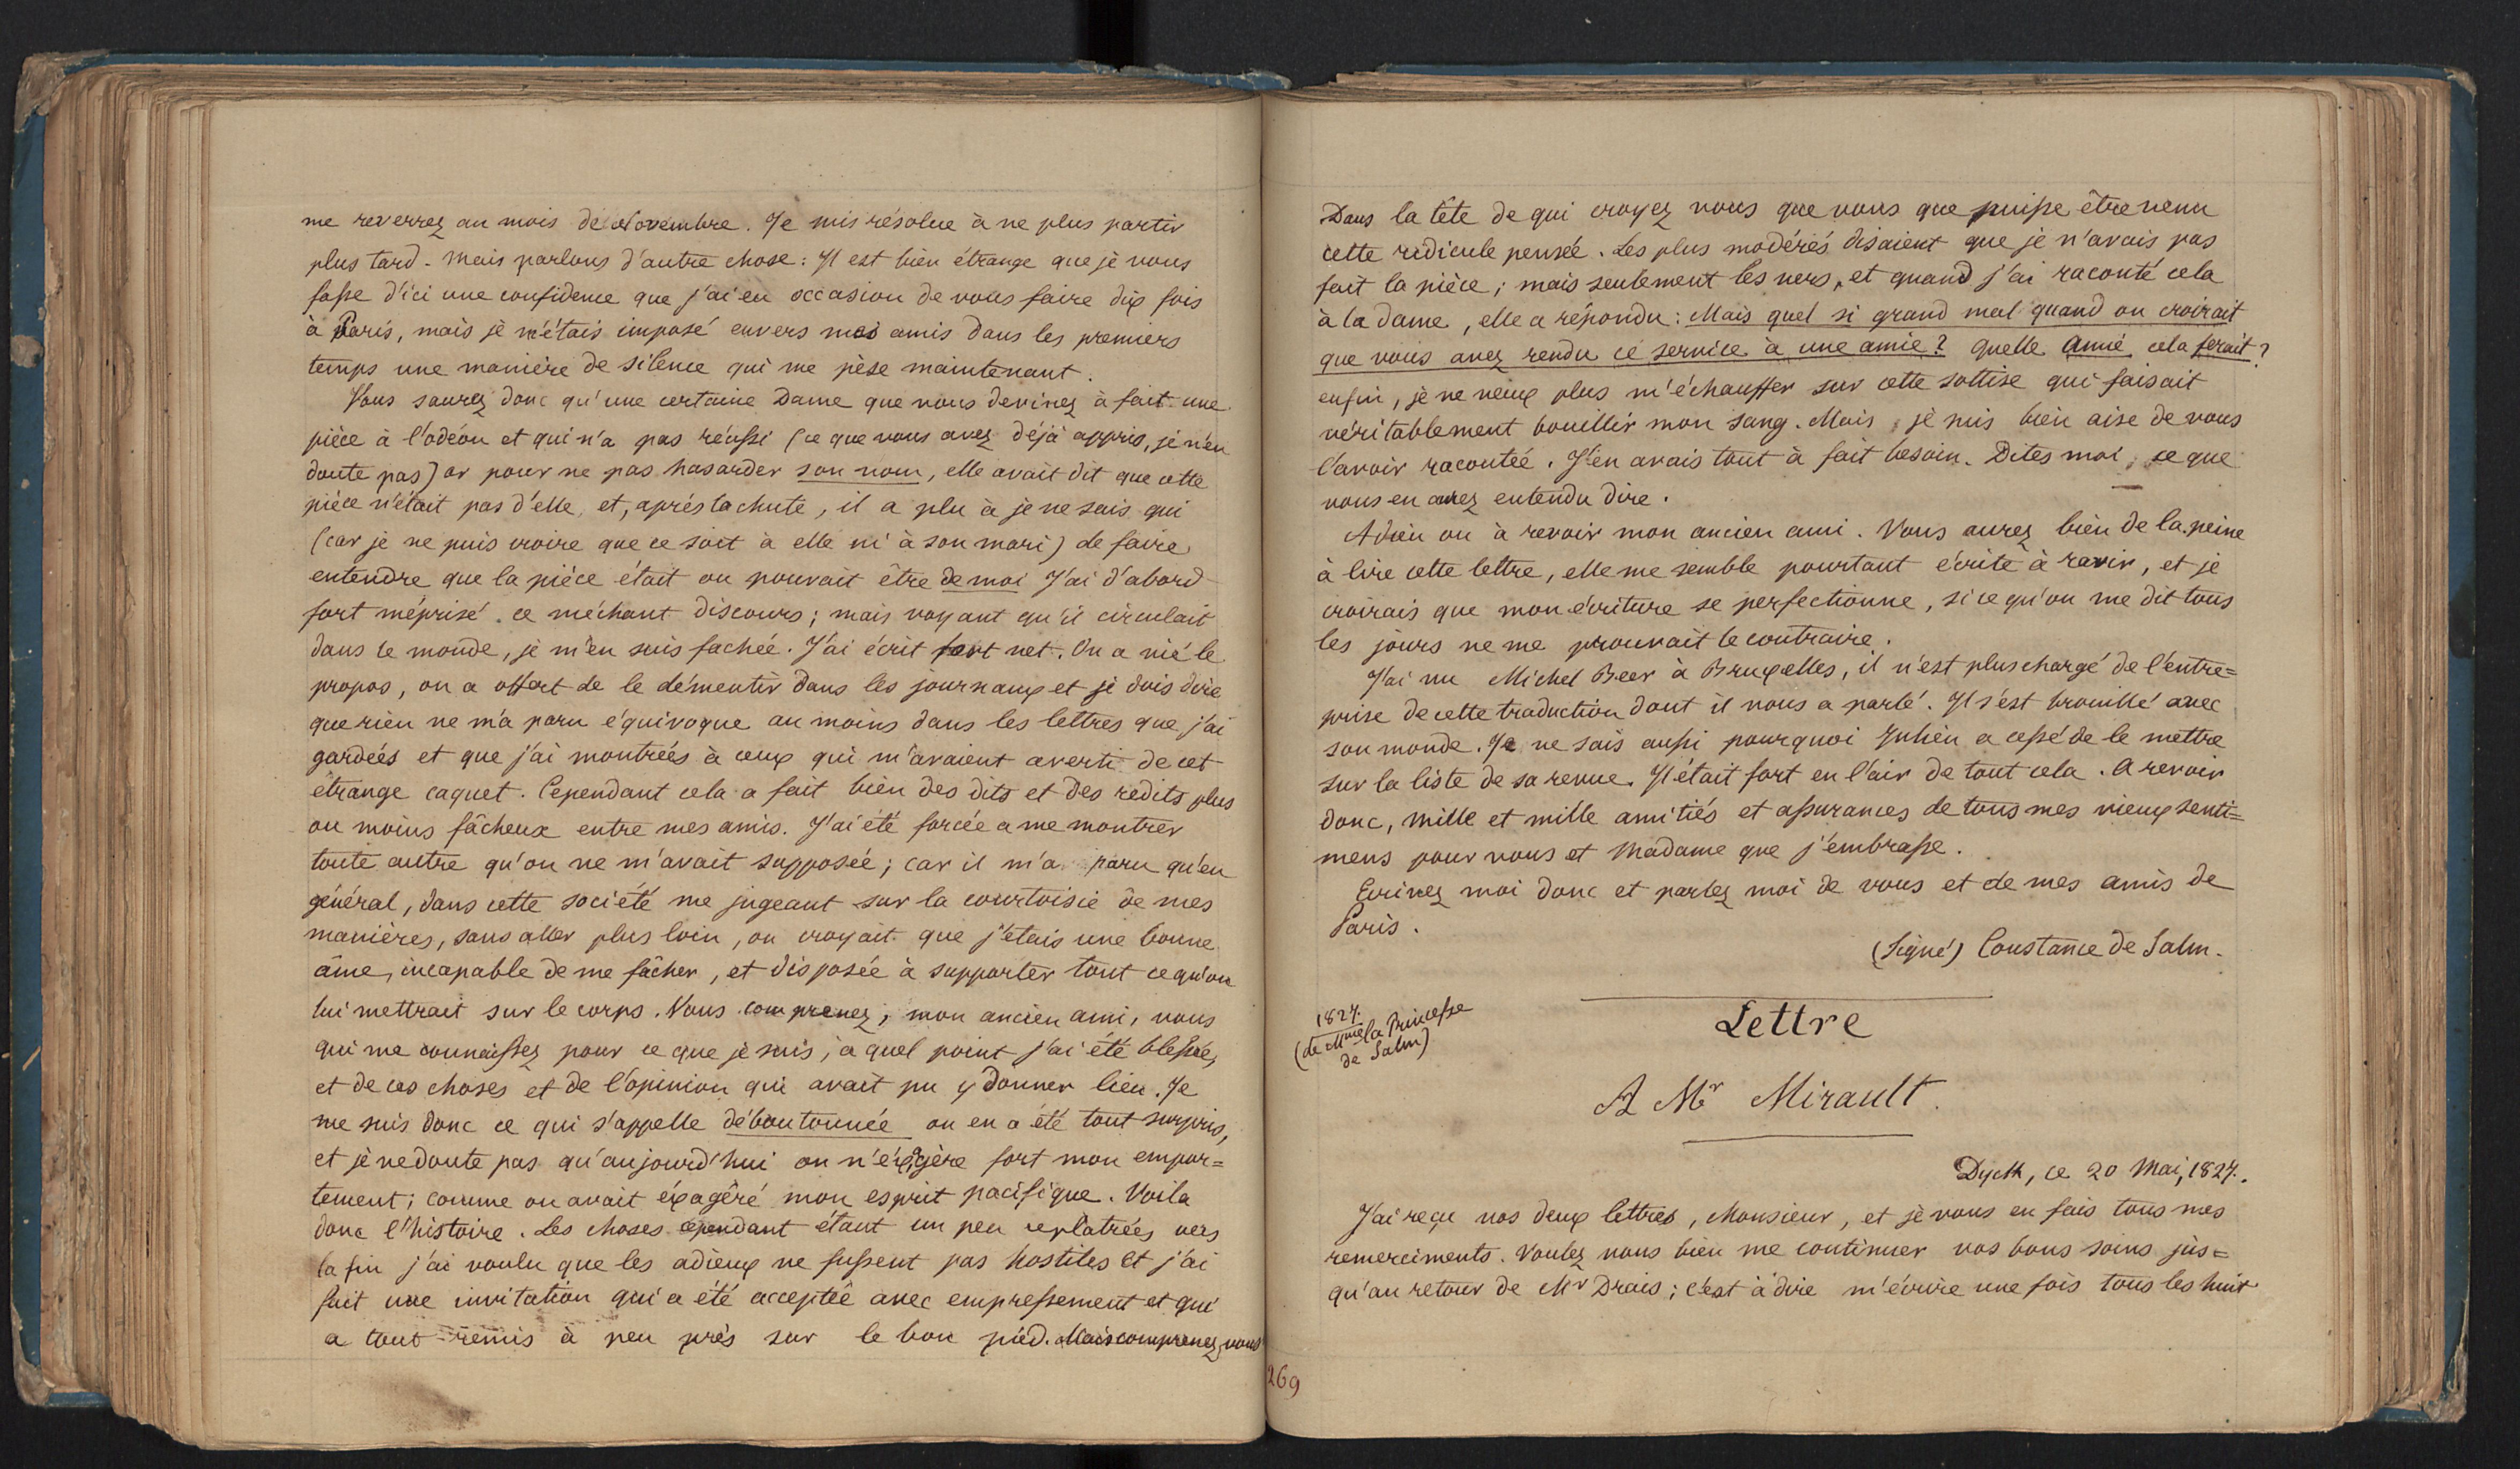 me reverrez au mois de Novembre. Je suis résolue à ne plus partir
plus tard. Mais parlons d'autre chose: Il est bien étrange que je vous
fasse d'ici une confidence que j'ai eu occasion de vous faire dix fois
à Paris, mais je m'étais imposé envers mes amis dans les premiers
temps une manière de silence qui me pèse maintenant.
Vous saurez donc qu'une certaine Dame que vous devinez à fait une
pièce à l'odéon et qui n'a pas réussi (ce que vous avez déjà appris, je n'en
doute pas) or pour ne pas hasarder son nom, elle avait dit que cette
pièce n'était pas d'elle, et, après la chute, il a plu à je ne sais qui
(car je ne puis croire que ce soit à elle ni à son mari) de faire
entendre que la pièce était ou pouvait être de moi J'ai d'abord
fort méprisé ce méchant discours; mais voyant qu'il circulait
dans le monde, je m'en suis fachée. J'ai écrit fort net. On a nié le
propos, on a offert de le démentir dans les journaux et je dois dire
que rien ne m'a paru équivoque au moins dans les lettres que j'ai
gardées et que j'ai montrées à ceux qui m'avaient averti de cet
étrange caquet. Cependant cela a fait bien des dits et des redits plus
ou moins fâcheux entre mes amis. J'ai été forcée a me montrer
toute autre qu'on ne m'avait supposée; car il m'a paru qu'en
général, dans cette société me jugeant sur la courtoisie de mes
manières, sans aller plus loin, on croyait que j'étais une bonne
âme, incapable de me fâcher, et disposée à supporter tout ce qu'on
lui mettrait sur le corps. Vous comprenez, mon ancien ami, vous
qui me connaissez pour ce que je suis, a quel point j'ai été blessée,
et de ces choses et de l'opinion qui avait pu y donner lieu. Je
me suis donc ce qui s'appelle déboutonnée on en a été tout surpris,
et je ne doute pas qu'aujourd'hui on n'éxagère fort mon empor=
tement; comme on avait éxagéré mon esprit pacifique. Voila
donc l'histoire. Les choses cependant étant un peu replatrées vers
la fin j'ai voulu que les adieux ne fussent pas hostiles et j'ai
fait une invitation qui a été acceptée avec empressement et qui
a tout remis à peu près sur le bon pied. Mais comprenez vous
269
Dans la tête de qui croyez vous que vous que puisse être venu
cette ridicule pensée. Les plus modérés disaient que je n'avais pas
fait la pièce; mais seulement les vers, et quand j'ai raconté cela
à la dame, elle a répondu: Mais quel si grand mal quand on croirait
que vous avez rendu ce service à une amie? Quelle amie cela ferait?
enfin, je ne veux plus m'échauffer sur cette sottise qui faisait
véritablement bouillir mon sang. Mais je suis bien aise de vous
l'avoir racontée. J'en avais tout à fait besoin. Dites moi ce que
vous en avez entendu dire.
Adieu ou à revoir mon ancien ami. Vous aurez bien de la peine
à lire cette lettre, elle me semble pourtant écrite à ravir, et je
croirais que mon écriture se perfectionne, si ce qu'on me dit tous
les jours ne me prouvait le contraire.
J'ai vu Michel Beer à Bruxelles, il n'est plus chargé de l'entre=
prise de cette traduction dont il nous a parlé. Il s'est brouillé avec
son monde. Je ne sais aussi pourquoi Julien a cessé de le mettre
sur la liste de sa revue. Il était fort en l'air de tout cela. A revoir
donc, mille et mille amitiés et assurances de tous mes vieux senti=
mens pour vous et Madame que j'embrasse.
Ecrivez moi donc et parlez moi de vous et de mes amis de
Paris.
(Signé) Constance de Salm.
1827.
(de Mme la Princesse
de Salm)
Lettre
A Mr Mirault.
Dyck, ce 20 Mai, 1827.
J'ai reçu vos deux lettres, Monsieur, et je vous en fais tous mes
remerciments. Voulez vous bien me continuer vos bons soins jus=
qu'au retour de Mr Drais; c'est à dire m'écrire une fois tous les huit